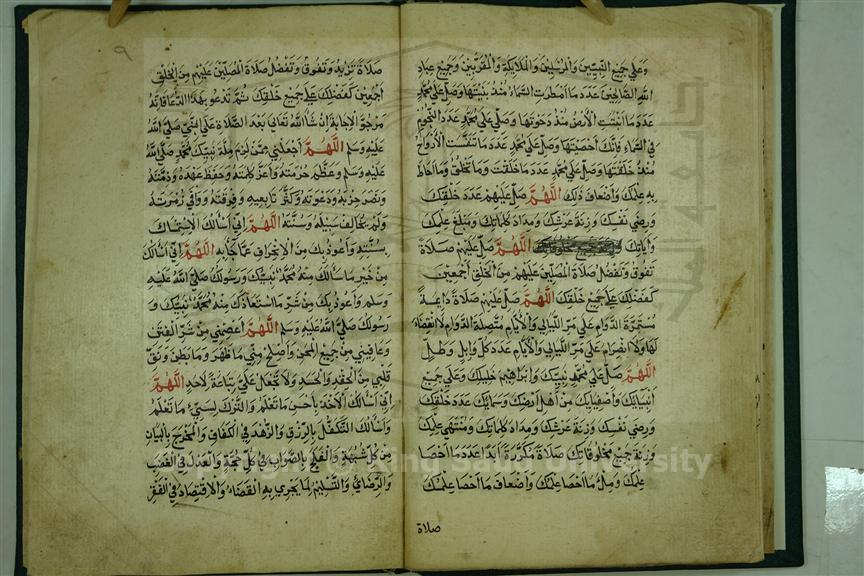 وَعَلَى جَمِيعِ النَّبِيِّينَ وَالْمُرْسَلِينَ وَالْمَلَائِكَةِ وَالْمُقَرَّبِينَ وَجَمِيعِ عِبَادِ
اللهِ الصَّالِحِينَ عَدَدَ مَا أَمْطَرَتِ السَّمَاءُ مُنْذُ بَنَيْتَهَا وَصَلِّ عَلَى مُحَمَّدٍ
عَدَدَ مَا أَنْبَتَتِ الْأَرْضُ مُنْذُ دَحَوْتَهَا وَصَلِّ عَلَى مُحَمَّدٍ عَدَدَ النُّجُومِ
فِي السَّمَاءِ فَإِنَّكَ أَحْصَيْتَهَا وَصَلِّ عَلَى مُحَمَّدٍ عَدَدَ مَا تَنَفَّسَتِ الْأَرْوَاحُ
مُنْذُ خَلَقْتَهَا وَصَلِّ عَلَى مُحَمَّدٍ عَدَدَ مَا خَلَقْتَ وَمَا تَخْلُقُ وَمَا أَحَاطَ
بِهِ عِلْمُكَ وَأَضْعَافَ ذَلِكَ اللَّهُمَّ صَلِّ عَلَيْهِمْ عَدَدَ خَلْقِكَ
وَرِضَى نَفْسِكَ وَزِنَةَ عَرْشِكَ وَمِدَادَ كَلِمَاتِكَ وَمَبْلَغَ عِلْمِكَ
وَآيَاتِكَ اللَّهُمَّ صَلِّ عَلَيْهِمْ صَلَاةً
تَفُوقُ وَتَفْضُلُ صَلَاةَ الْمُصَلِّينَ عَلَيْهِمْ مِنَ الْخَلْقِ أَجْمَعِينَ
كَفَضْلِكَ عَلَى جَمِيعِ خَلْقِكَ اللَّهُمَّ صَلِّ عَلَيْهِمْ صَلَاةً دَائِمَةً
مُسْتَمِرَّةَ الدَّوَامِ عَلَى مَرِّ اللَّيَالِي وَالْأَيَّامِ مُتَّصِلَةَ الدَّوَامِ لَا انْقِضَاءَ
لَهَا وَلَا انْصِرَامَ عَلَى مَرِّ اللَّيَالِي وَالْأَيَّامِ عَدَدَ كُلِّ وَابِلٍ وَطَلٍّ
اللَّهُمَّ صَلِّ عَلَى مُحَمَّدٍ نَبِيِّكَ وَإِبْرَاهِيمَ خَلِيلِكَ وَعَلَى جَمِيعِ
أَنْبِيَائِكَ وَأَصْفِيَائِكَ مِنْ أَهْلِ أَرْضِكَ وَسَمَائِكَ عَدَدَ خَلْقِكَ
وَرِضَى نَفْسِكَ وَزِنَةَ عَرْشِكَ وَمِدَادَ كَلِمَاتِكَ وَمُنْتَهَى عِلْمِكَ
وَزِنَةَ جَمِيعِ مَخْلُوقَاتِكَ صَلَاةً مُكَرَّرَةً أَبَدًا عَدَدَ مَا أَحْصَا
عِلْمُكَ وَمِلْءَ مَا أَحْصَا عِلْمُكَ وَأَضْعَافَ مَا أَحْصَا عِلْمُكَ
صلاة
٩
صَلَاةً تَزِيدُ وَتَفُوقُ وَتَفْضُلُ صَلَاةَ الْمُصَلِّينَ عَلَيْهِمْ مِنَ الْخَلْقِ
أَجْمَعِينَ كَفَضْلِكَ عَلَى جَمِيعِ خَلْقِكَ ثُمَّ تَدْعُو بِهَذَا الدُّعَاءِ فَإِنَّهُ
مَرْجُوُّ الْإِجَابَةِ إِنْ شَاءَ اللهُ تَعَالَى بَعْدَ الصَّلَاةِ عَلَى النَّبِيِّ صَلَّى اللهُ
عَلَيْهِ وَسَلَّمَ اللَّهُمَّ اجْعَلْنِي مِمَّنْ لَزِمَ مِلَّةَ نَبِيِّكَ مُحَمَّدٍ صَلَّى اللهُ
عَلَيْهِ وَسَلَّمَ وَعَظَّمَ حُرْمَتَهُ وَأَعَزَّ كَلِمَتَهُ وَحَفِظَ عَهْدَهُ وَذِمَّتَهُ
وَنَصَرَ حِزْبَهُ وَدَعْوَتَهُ وَكَثَّرَ تَابِعِيهِ وَفِرْقَتَهُ وَوَافَى زُمْرَتَهُ
وَلَمْ يُخَالِفْ سَبِيلَهُ وَسُنَّتَهُ اللَّهُمَّ إِنِّي أَسْأَلُكَ الِاسْتِمْسَاكَ
بِسُنَّتِهِ وَأَعُوذُ بِكَ مِنَ الِانْحِرَافِ عَمَّا جَاءَ بِهِ اللَّهُمَّ إِنِّي أَسْأَلُكَ
مِنْ خَيْرِ مَا سَأَلَكَ مِنْهُ مُحَمَّدٌ نَبِيُّكَ وَرَسُولُكَ صَلَّى اللهُ عَلَيْهِ
وَسَلَّمَ وَأَعُوذُ بِكَ مِنْ شَرِّ مَا اسْتَعَاذَكَ مِنْهُ مُحَمَّدٌ نَبِيُّكَ وَ
رَسُولُكَ صَلَّى اللهُ عَلَيْهِ وَسَلَّمَ اللَّهُمَّ اعْصِمْنِي مِنْ شَرِّ الْفِتَنِ
وَعَافِنِي مِنْ جَمِيعِ الْمِحَنِ وَأَصْلِحْ مِنِّي مَا ظَهَرَ وَمَا بَطَنَ وَنَقِّ
قَلْبِي مِنَ الْحِقْدِ وَالْحَسَدِ وَلَا تَجْعَلْ عَلَيَّ تِبَاعَةً لِأَحَدٍ اللَّهُمَّ
إِنِّي أَسْأَلُكَ الْأَخْذَ بِأَحْسَنِ مَا تَعْلَمُ وَالتَّرْكَ لِسَيِّئِ مَا تَعْلَمُ
وَأَسْأَلُكَ التَّكَفُّلَ بِالرِّزْقِ وَالزُّهْدَ فِي الْكَفَافِ وَالْمَخْرَجَ بِالْبَيَانِ
مِنْ كُلِّ شُبْهَةٍ وَالْفَلَجَ بِالصَّوَابِ فِي كُلِّ حُجَّةٍ وَالْعَدْلَ فِي الْغَضَبِ
وَالرِّضَاءِ وَالتَّسْلِيمَ لِمَا يَجْرِي بِهِ الْقَضَاءُ وَالِاقْتِصَادَ فِي الْفَقْرِ
© King Saud University